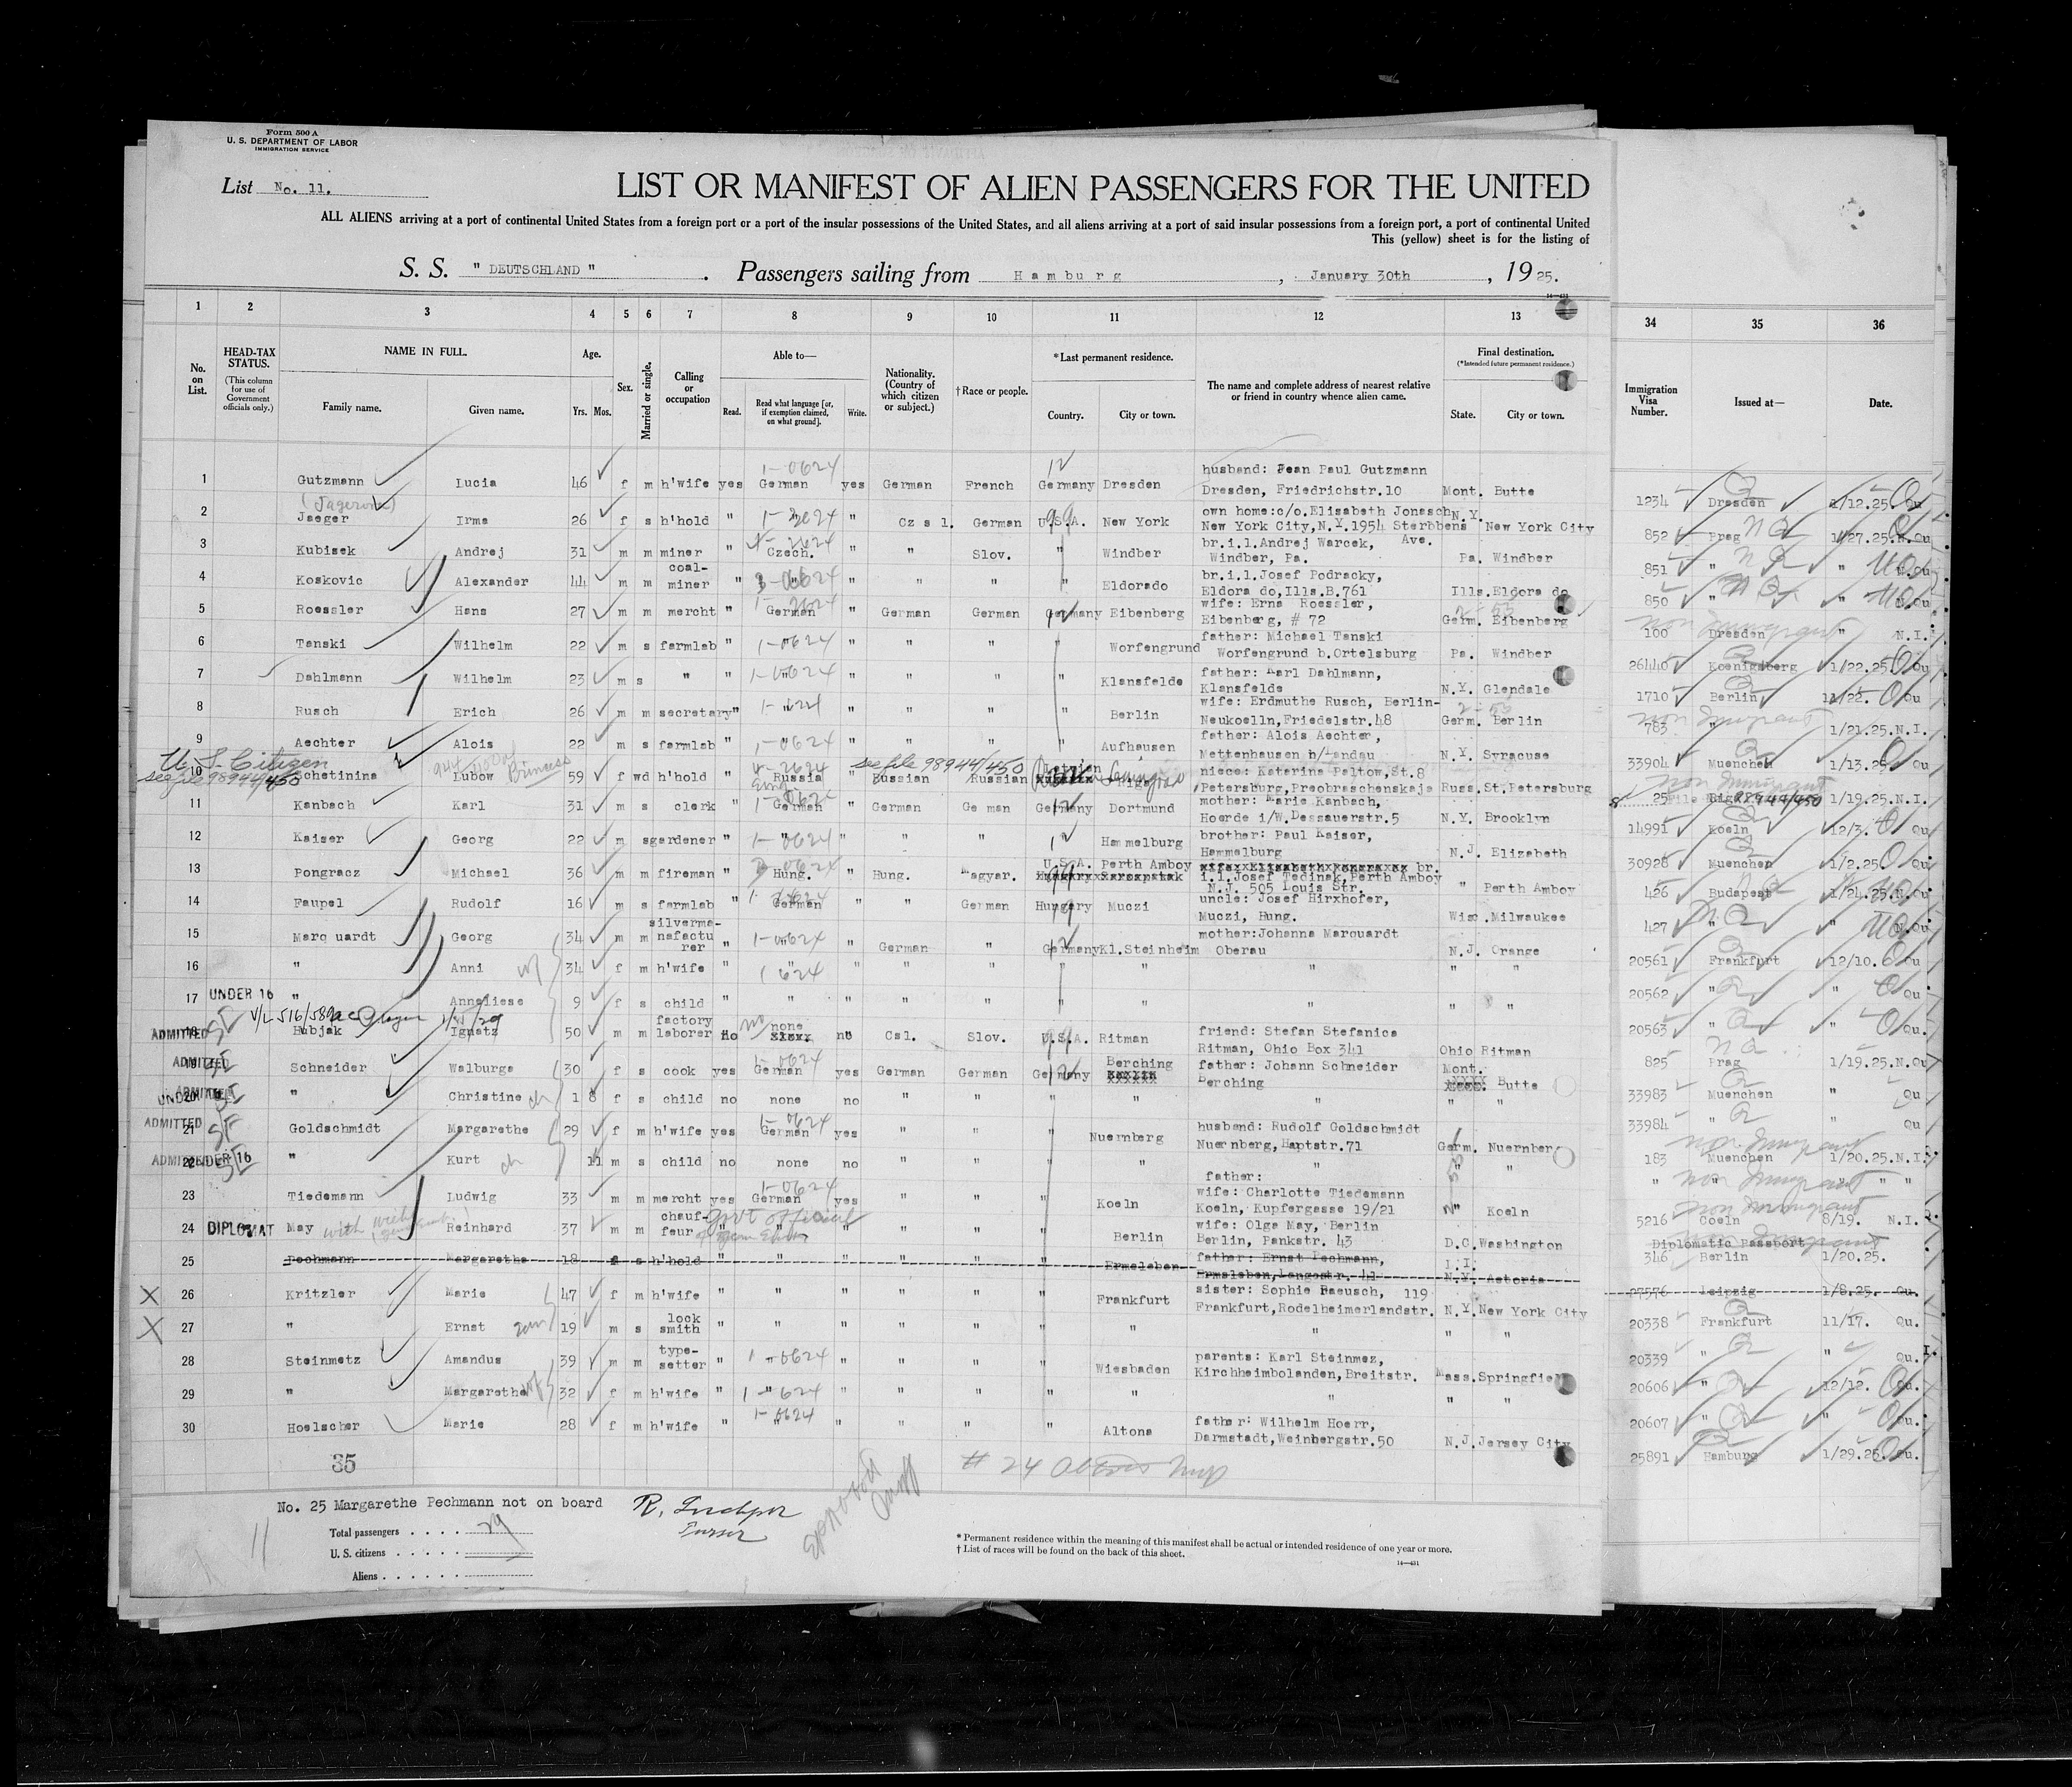 Form 500 A
U. S. DEPARTMENT OF LABOR
IMMIGRATION SERVICE
List No. 11.
LIST OR MANIFEST OF ALIEN PASSENGERS FOR THE UNITED
ALL ALIENS arriving at a port of continental United States from a foreign port or a port of the insular possessions of the United States, and all aliens arriving at a port of said insular possessions from a foreign port, a port of continental United
This (yellow) sheet is for the listing of
S. S. " DEUTSCHLAND " . Passengers sailing from Hamburg , January 30th , 1925.
1 2 3 4 5 6 7 8 9 10 11 12 13 34 35 36
No. on List.
HEAD-TAX STATUS.
(This column for use of Government officials only.)
NAME IN FULL.
Family name. Given name.
Age.
Yrs. Mos.
Sex.
Married or single.
Calling or occupation
Able to—
Read. Read what language [or, if exemption claimed, on what ground]. Write.
Nationality. (Country of which citizen or subject.)
†Race or people.
*Last permanent residence.
Country. City or town.
The name and complete address of nearest relative or friend in country whence alien came.
Final destination.
(*Intended future permanent residence.)
State. City or town.
Immigration Visa Number. Issued at— Date.
1 Gutzmann Lucia 46 f m h'wife yes German yes German French Germany Dresden husband: Jean Paul Gutzmann Dresden, Friedrichstr.10 Mont. Butte 1234 Dresden 1/12.25. Qu
2 Jaeger Irma 26 f s h'hold " " Cz s l. German U.S.A. New York own home:c/o.Elisabeth Jonasch New York City,N.Y.1954 Sterbbens Ave. N.Y. New York City 852 Prag 1/27.25.N.Qu
3 Kubisek Andrej 31 m m miner " Czech. " " Slov. " Windber br.i.l.Andrej Warcek, Windber, Pa. Pa. Windber 851 " " N.Qu
4 Koskovic Alexander 44 m m coal-miner " " " " " " Eldorado br.i.l.Josef Podracky, Eldora do,Ills.B.761 Ills.Eldora do 850 " " N.Qu
5 Roessler Hans 27 m m mercht " German " German German Germany Eibenberg wife: Erna Roessler, Eibenberg, # 72 Germ. Eibenberg 100 Dresden " N.I.
6 Tanski Wilhelm 22 m s farmlab " " " " " " Worfengrund father: Michael Tanski Worfengrund b.Ortelsburg Pa. Windber 26440 Koenigsberg 1/22.25. Qu
7 Dahlmann Wilhelm 23 m s " " " " " " " Klansfelde father: Karl Dahlmann, Klansfelde N.Y. Glendale 1710 Berlin 1/22. Qu
8 Rusch Erich 26 m m secretary " " " " " " Berlin wife: Erdmuthe Rusch, Berlin-Neukoelln,Friedelstr.48 Germ. Berlin 783 " 1/21.25.N.I.
9 Aechter Alois 22 m s farmlab " " " " " " Aufhausen father: Alois Aechter, Mettenhausen b/Landau N.Y. Syracuse 33904 Muenchen 1/13.25. Qu
U. S. Citizen
see file 98944/450
10 Schetinina Lubow Princess 59 f wd h'hold " Russia " Russian Russian niece: Katarina Paltow,St.8 Petersburg,Preobraschenskaje Russ.St.Petersburg 25 Riga 1/19.25.N.I.
see file 98944/450
11 Kanbach Karl 31 m s clerk " German " German Ge man Germany Dortmund mother: Marie Kanbach, Hoerde i/W.Dessauerstr.5 N.Y. Brooklyn 14991 Koeln 12/3. Qu
12 Kaiser Georg 22 m s gardener " " " " " " Hammelburg brother: Paul Kaiser, Hammelburg N.J. Elizabeth 30928 Muenchen 1/2.25. Qu
13 Pongracz Michael 36 m m fireman " Hung. " Hung. Magyar. U.S.A. Perth Amboy br. i.l.Josef Tedinak,Perth Amboy N.J. 505 Louis Str. " Perth Amboy 426 Budapest 1/24.25.N.Qu
14 Faupel Rudolf 16 m s farmlab " German " " German Hungary Muczi uncle: Josef Hirxhofer, Muczi, Hung. Wisc.Milwaukee 427 " " N.Qu
15 Marq uardt Georg 34 m m silverma-nafactu rer " " " German " Germany Kl.Steinheim mother:Johanna Marquardt Oberau N.J. Orange 20561 Frankfurt 12/10. Qu
16 " Anni 34 f m h'wife " " " " " " " " " " 20562 " " Qu
17 UNDER 16 " Anneliese 9 f s child " " " " " " " " " " 20563 " " Qu.
18 ADMITTED Hubjak Ignatz 50 m m factory laborer no none no Csl. Slov. U.S.A. Ritman friend: Stefan Stefanica Ritman, Ohio Box 341 Ohio Ritman 825 Prag 1/19.25.N.Qu
19 ADMITTED Schneider Walburga 30 f s cook yes German yes German German Germany Berching father: Johann Schneider Berching Mont. Butte 33983 Muenchen " Qu
20 ADMITTED " Christine 1 8 f s child no none no " " " " " " " 33984 " Qu
21 ADMITTED Goldschmidt Margarethe 29 f m h'wife yes German yes " " " Nuernberg husband: Rudolf Goldschmidt Nuernberg,Haptstr.71 Germ. Nuernberg 183 Muenchen 1/20.25.N.I.
22 ADMITTED UNDER 16 " Kurt 11 m s child no none no " " " " father: " " " " " " "
23 Tiedemann Ludwig 33 m m mercht yes German yes " " " Koeln wife: Charlotte Tiedemann Koeln, Kupfergasse 19/21 " Koeln 5216 Coeln 8/19. N.I.
24 DIPLOMAT May Reinhard 37 m m chauf-feur " " " " " " Berlin wife: Olga May, Berlin Berlin, Pankstr. 43 D.C.Washington Diplomatic Passport 346 Berlin 1/20.25.
Govt official
25 Pechmann Margarethe 18 f s h'hold " " " " " " Ermsleben father: Ernst Pechmann, Ermsleben,Langestr. 41 L.I. N.Y. Astoria 27576 Leipzig 1/8.25. Qu.
X 26 Kritzler Marie 47 f m h'wife " " " " " " Frankfurt sister: Sophie Baeusch, 119 Frankfurt,Rodelheimerlandstr. N.Y.New York City 20338 Frankfurt 11/17. Qu.
X 27 " Ernst 19 m s lock smith " " " " " " " " " " 20339 " " Qu.
28 Steinmetz Amandus 39 m m type-setter " " " " " " Wiesbaden parents: Karl Steinmez, Kirchheimbolanden,Breitstr. Mass.Springfiel 20606 " 12/12. Qu.
29 " Margarethe 32 f m h'wife " " " " " " " " " " 20607 " " Qu.
30 Hoelscher Marie 28 f m h'wife " " " " " " Altona father: Wilhelm Hoerr, Darmstadt,Weinbergstr.50 N.J.Jersey City 25891 Hamburg 1/29.25. Qu.
35
No. 25 Margarethe Pechmann not on board
11
Total passengers . . . . 29
U. S. citizens . . . . .
Aliens . . . . . .
* Permanent residence within the meaning of this manifest shall be actual or intended residence of one year or more.
† List of races will be found on the back of this sheet.
14—431